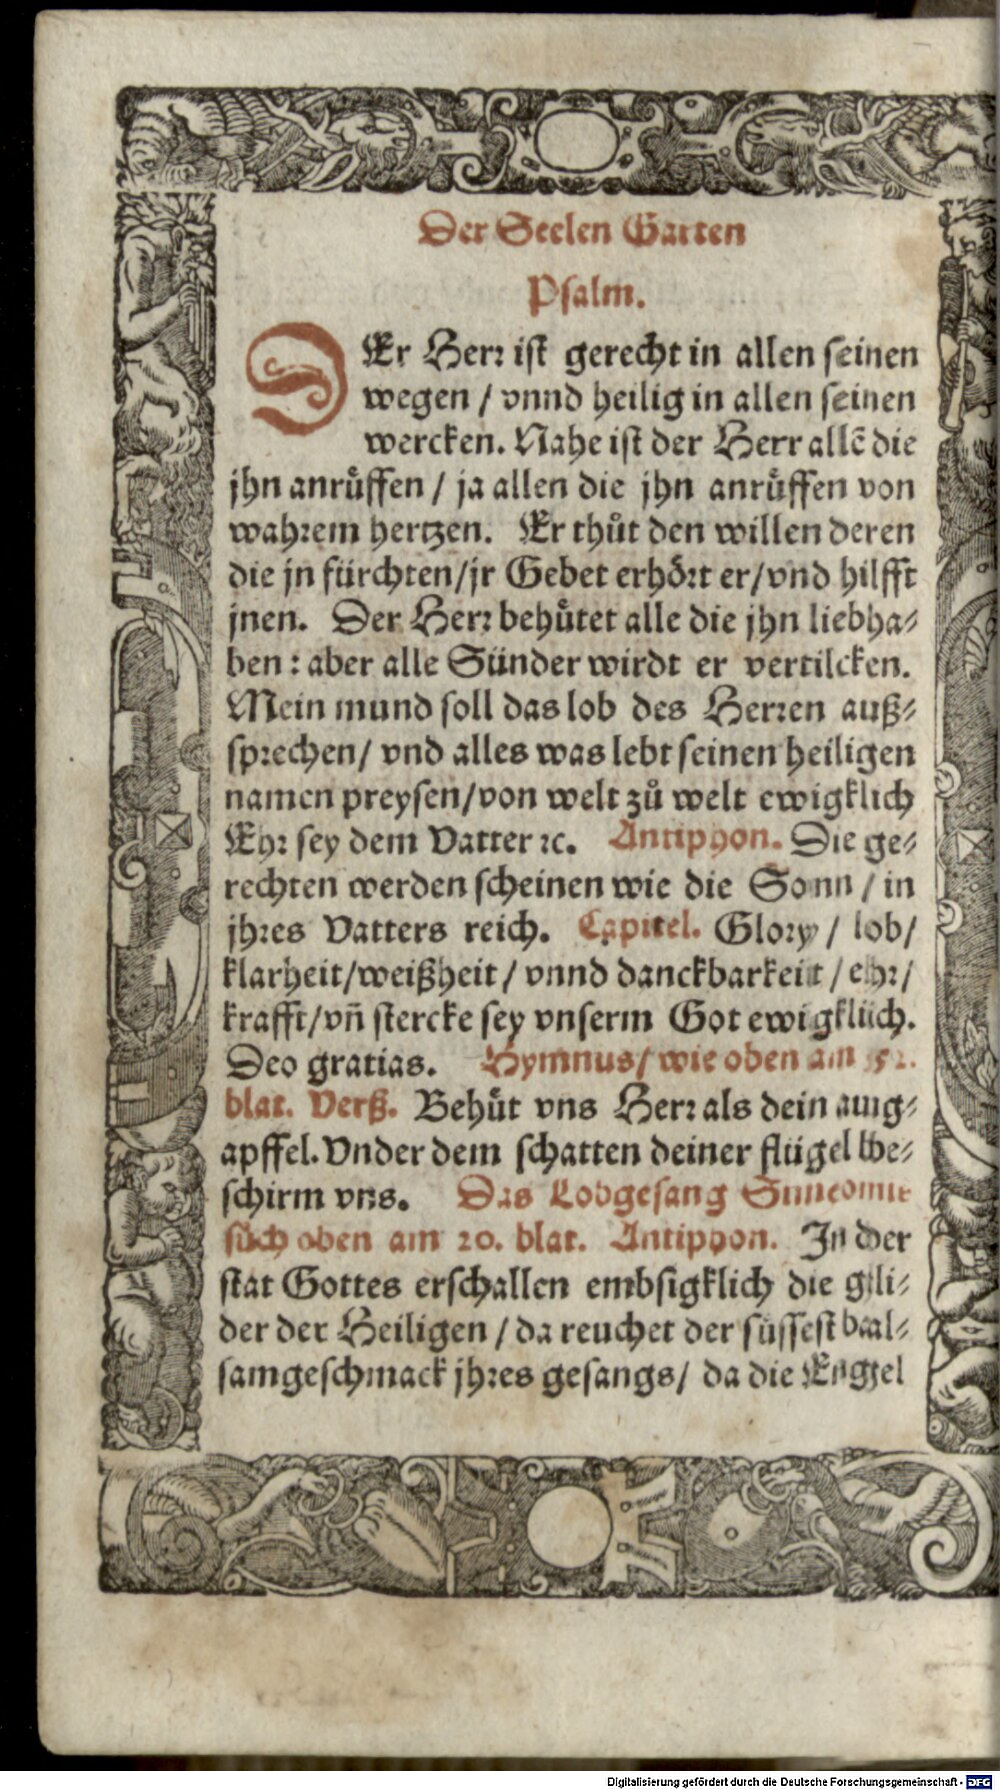 Der Seelen Garten
Psalm.
DEr Herr ist gerecht in allen seinen
wegen / vnnd heilig in allen seinen
wercken. Nahe ist der Herr allẽ die
jhn anrůffen / ja allen die jhn anrůffen von
wahrem hertzen. Er thůt den willen deren
die jn fürchten/jr Gebet erhört er/vnd hilfft
jnen. Der Herr behůtet alle die jhn liebha-
ben: aber alle Sünder wirdt er vertilcken.
Mein mund soll das lob des Herren auß-
sprechen/ vnd alles was lebt seinen heiligen
namen preysen/von welt zů welt ewigklich
Ehr sey dem Vatter ꝛc. Antiphon. Die ge-
rechten werden scheinen wie die Sonn / in
jhres Vatters reich. Capitel. Glory / lob/
klarheit/weißheit / vnnd danckbarkeit / ehr/
krafft/vñ stercke sey vnserm Got ewigklich.
Deo gratias. Hymnus/ wie oben am
blat. Verß. Behůt vns Herr als dein aug-
apffel. Vnder dem schatten deiner flügel be-
schirm vns. Das Lobgesang Simeonis
sůch oben am 20. blat. Antiphon. In der
stat Gottes erschallen embsigklich die gli-
der der Heiligen / da reuchet der süssest bal-
samgeschmack jhres gesangs/ da die Engel
Digitalisierung gefördert durch die Deutsche Forschungsgemeinschaft - DFG